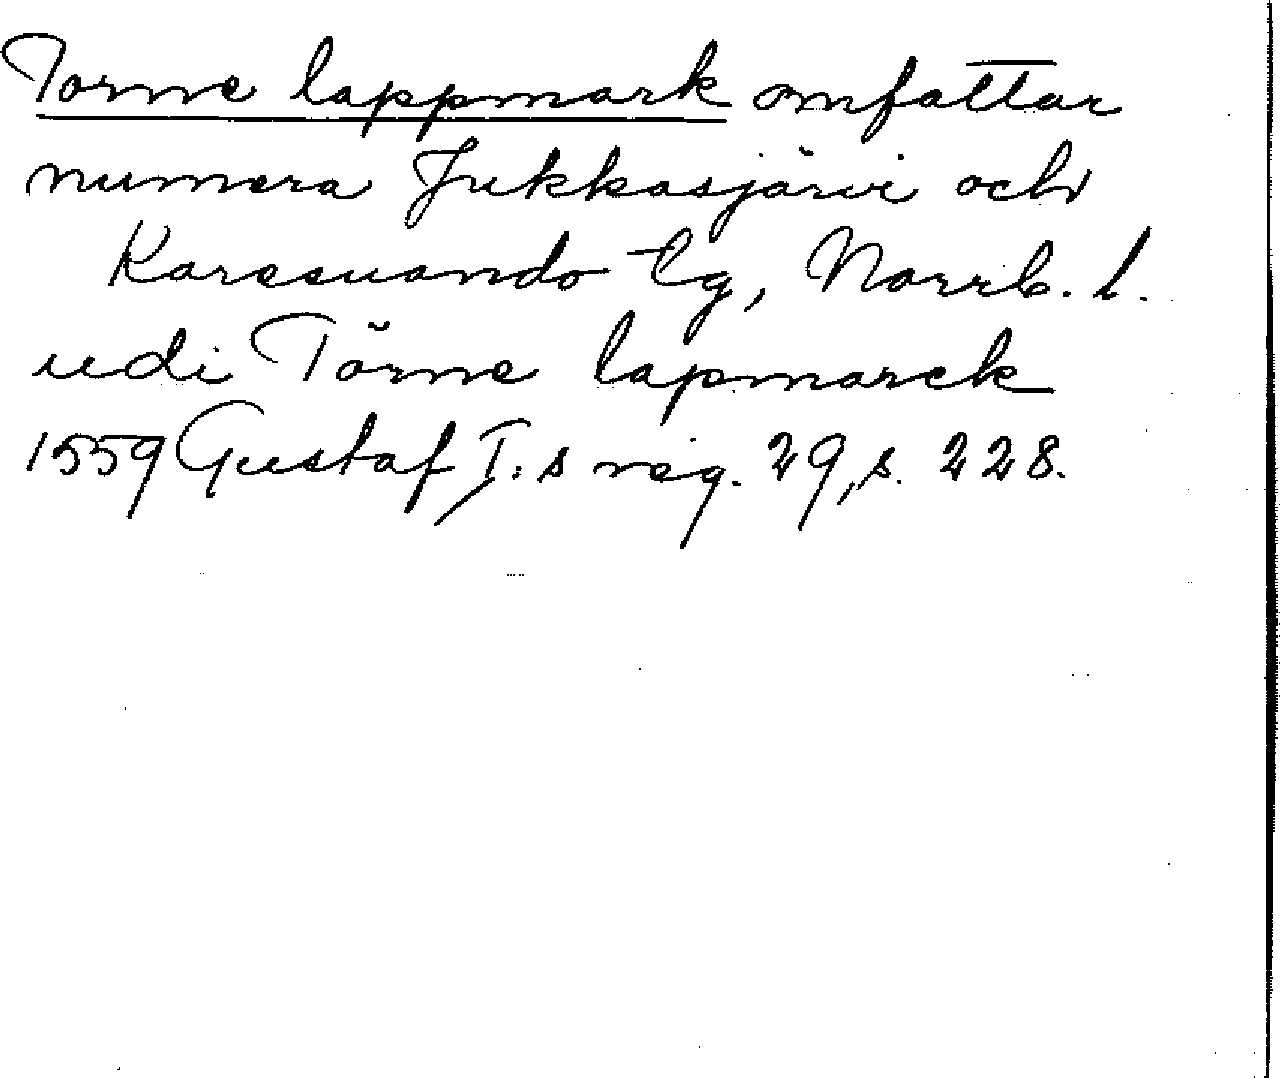 Torne lappmark omfattar
numera Jukkasjärvi och
Karesuando tg, Norrb. l.
udi Törne lapmarck
1559 Gustaf I:s reg. 29, s. 228.